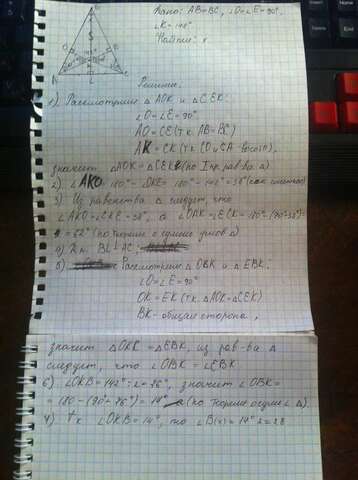 Дано: AB=BC, ∠O=∠E=90°.
∠K=142°
Найти: x
Решение.
1) Рассмотрим △AOK и △CEK:
∠O=∠E=90°
AO=CE (т.к. AB=BC)
AK=CK (т.к. CO и CA
значит △AOK=△CEK (по I пр. рав-ва △)
2) ∠AKO=180°-∠OKE=180°-142°=38° (как смежные)
3) Из равенства △ следует, что
∠AKO=∠CKE=38°, а ∠OAK=∠ECK=180°-(90°+38°)=
=52° (по теореме о сумме углов △)
4) Т.к. BL⊥AC;
5) Рассмотрим △OBK и △EBK:
∠O=∠E=90°
OK=EK (т.к. △AOK=△CEK)
BK-общая сторона,
значит △OKB=△EBK, из рав-ва △
следует, что ∠OBK=∠EBK
6) ∠OKB=142°:2=76°, значит ∠OBK=
=180-(90°+76°)=14° (по теореме о сумме ∠ △).
7) Т.к ∠OKB=14°, то ∠B(x)=14°·2=28